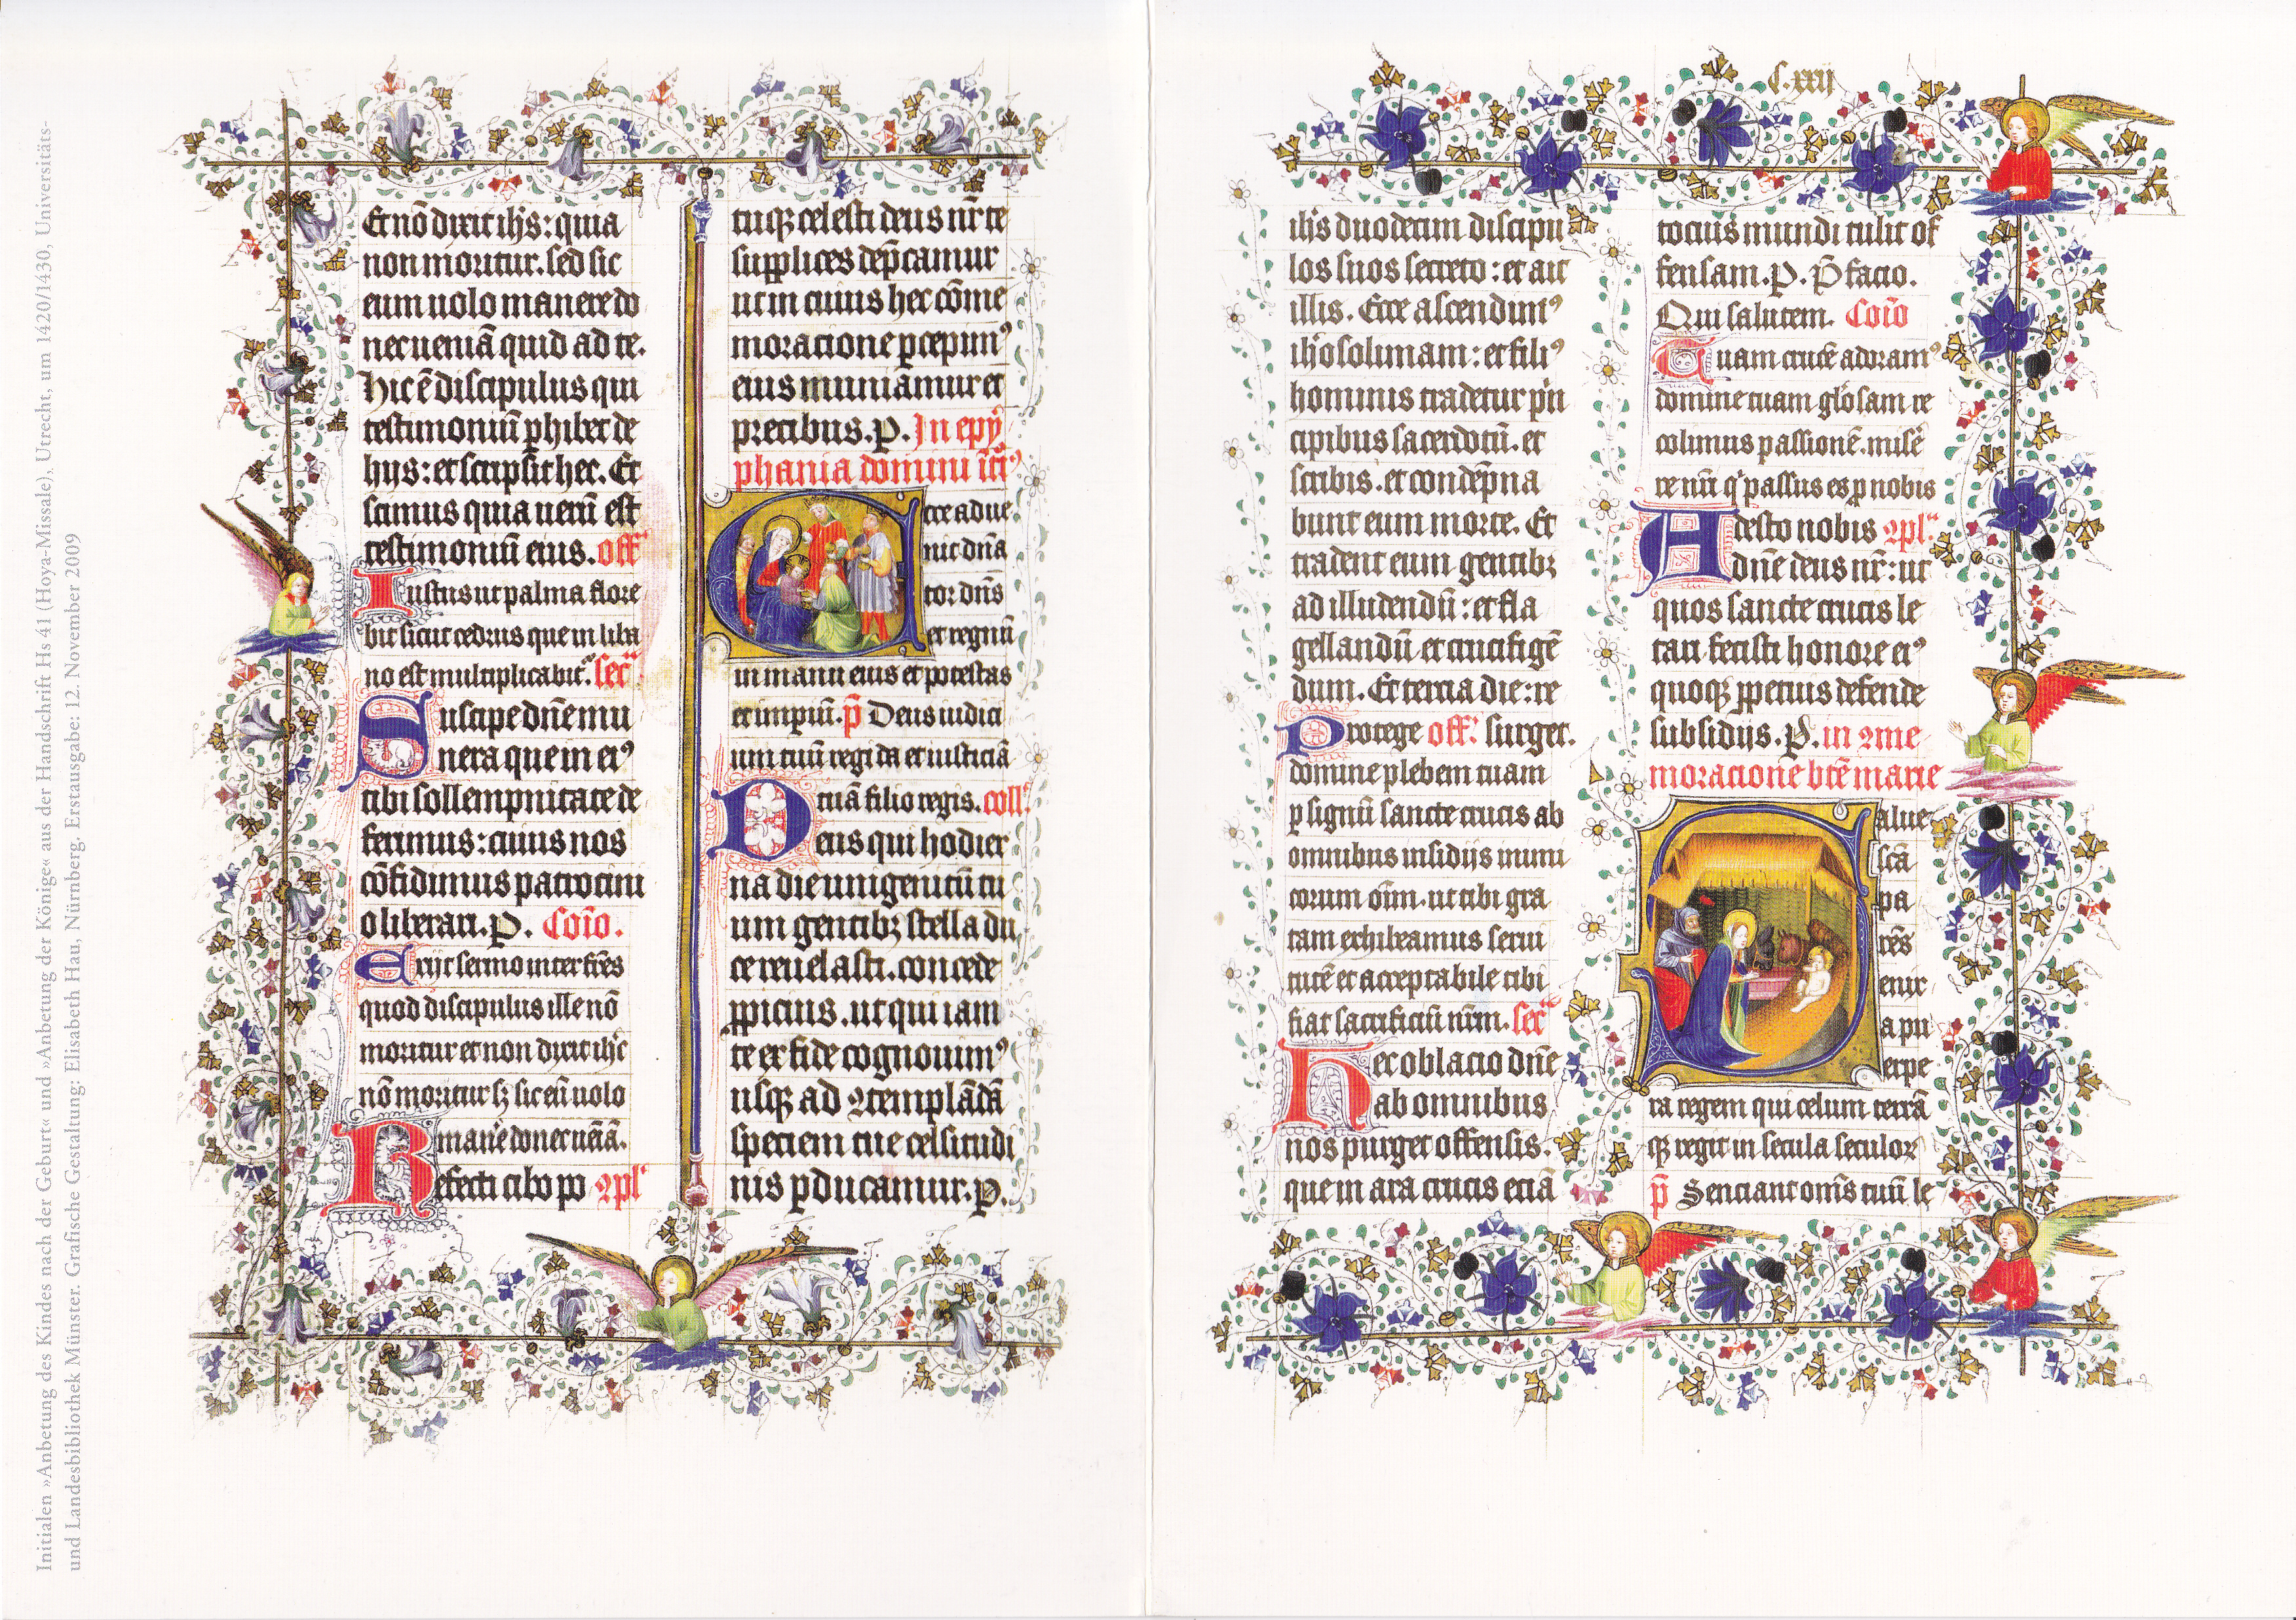 Initialen »Anbetung des Kindes nach der Geburt« und »Anbetung der Könige« aus der Handschrift Hs 41 (Hoya-Missale), Utrecht, um 1420/1430, Universitäts-
und Landesbibliothek Münster. Grafische Gestaltung: Elisabeth Hau, Nürnberg. Erstausgabe: 12. November 2009
Et nō dixit ih̄s: quia
non moritur. sed sic
eum uolo manere do
nec ueniā quid ad te.
Hic ē discipulus qui
testimoniū phibet de
hijs: et scripsit hec. Et
scimus quia uerū est
testimoniū eius. off
Iustus ut palma flore
bit sicut cedrus que in liba
no est multiplicabit. secr
Suscipe dn̄e mu
nera que in ei⁹
tibi sollempnitate de
ferimus: cuius nos
cōfidimus patrocini
o liberari. P. Cōio.
Exijt sermo inter frēs
quod discipulus ille nō
moritur et non dixit ih̄c
nō moritur sꝫ sic eū uolo
manē donec ueniā.
Refecti cibo po ꝯpl
tuqꝫ celesti deus nr̄ te
supplices dep̄camur
ut in cuius hec cōme
moratione p̱cepim⁹
eius muniamur et
precibus. P. In epy
phania domini
Ecce adue
nit dn̄a
tor dn̄s
et regnū
in manu eius et potestas
et impiū. p̄ Deus iudici
um tuū regi da et iusticiā
tuā filio regis. coll
Deus qui hodier
na die unigenitū tu
um gentibꝫ stella du
ce reuelasti. concede
ppicius. ut qui iam
te ex fide cognouim⁹
usqꝫ ad ꝯtemplādā
speciem tue celsitudi
nis pducamur. P.
C.xxij
ih̄s duodecim discipu
los suos secreto: et ait
illis. Ecce ascendim⁹
ih̓osolimam: et fili⁹
hominis tradetur p̓n
cipibus sacerdotū. et
scribis. et condēpna
bunt eum morte. Et
tradent eum gentibꝫ
ad illudendū: et fla
gellandū et crucifigē
dum. Et tercia die: re
Protege off. surget.
domine plebem tuam
p signū sancte crucis ab
omnibus insidijs inimi
corum om̄. ut tibi gra
tam exhibeamus serui
tutē et acceptabile tibi
fiat sacrificiū nrm. secr
Hec oblacio dn̄e
ab omnibus
nos purget offensis.
que in ara crucis eciā
tocius mundi tulit of
fensam. P. P̄facio.
Qui salutem. Cōio
Tuam crucē adoram⁹
domine tuam glōsam re
colimus passionē. misē
re nr̄i q̓ passus es p nobis
Adesto nobis ꝯpl.
dn̄e deus nr̄: ut
quos sancte crucis le
tari fecisti honore ei⁹
quoqꝫ ppetuis defende
subsidijs. P. in ꝯme
moratione btē marie
Salue
scā
pa
rēs
enix
a pu
erpe
ra regem qui celum terrā
qꝫ regit in secula seculoꝝ
p̄ Senciant om̄s tuū le